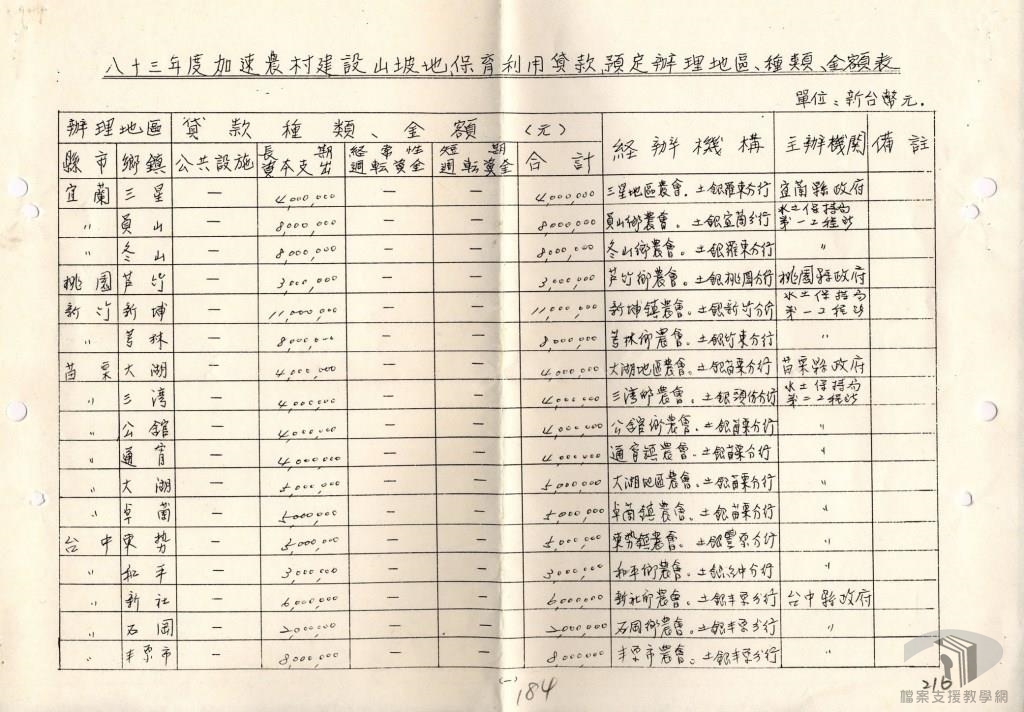 八十三年度加速農村建設山坡地保育利用貸款預定辦理地區、種類、金額表
單位：新台幣元.
辦理地區 貸款種類、金額(元) 經辦機構 主辦機關 備註
縣市 鄉鎮 公共設施 長期資本支出 經常性週転資金 短期週転資金 合計
宜蘭 三星 — 4,000,000 — — 4,000,000 三星地區農會。土銀羅東分行 宜蘭縣政府
〃 員山 — 8,000,000 — — 8,000,000 員山鄉農會。土銀宜蘭分行 水土保持局第一工程所
〃 冬山 — 8,000,000 — — 8,000,000 冬山鄉農會。土銀羅東分行 〃
桃園 芦竹 — 3,000,000 — — 3,000,000 芦竹鄉農會。土銀桃園分行 桃園縣政府
新竹 新埔 — 11,000,000 — — 11,000,000 新埔鎮農會。土銀新竹分行 水土保持局第一工程所
〃 芎林 — 8,000,000 — — 8,000,000 芎林鄉農會。土銀竹東分行 〃
苗栗 大湖 — 4,000,000 — — 4,000,000 大湖地區農會。土銀苗栗分行 苗栗縣政府
〃 三湾 — 4,000,000 — — 4,000,000 三湾鄉農會。土銀頭份分行 水土保持局第二工程所
〃 公館 — 4,000,000 — — 4,000,000 公館鄉農會。土銀苗栗分行 〃
〃 通霄 — 4,000,000 — — 4,000,000 通霄鎮農會。土銀苗栗分行 〃
〃 大湖 — 5,000,000 — — 5,000,000 大湖地區農會。土銀苗栗分行 〃
〃 卓蘭 — 5,000,000 — — 5,000,000 卓蘭鎮農會。土銀苗栗分行 〃
台中 東勢 — 5,000,000 — — 5,000,000 東勢鎮農會。土銀豐原分行 〃
〃 和平 — 3,000,000 — — 3,000,000 和平鄉農會。土銀台中分行 〃
〃 新社 — 6,000,000 — — 6,000,000 新社鄉農會。土銀丰原分行 台中縣政府
〃 石岡 — 2,000,000 — — 2,000,000 石岡鄉農會。土銀丰原分行 〃
〃 丰原市 — 8,000,000 — — 8,000,000 丰原市農會。土銀丰原分行 〃
(一)
184
216
檔案支援教學網